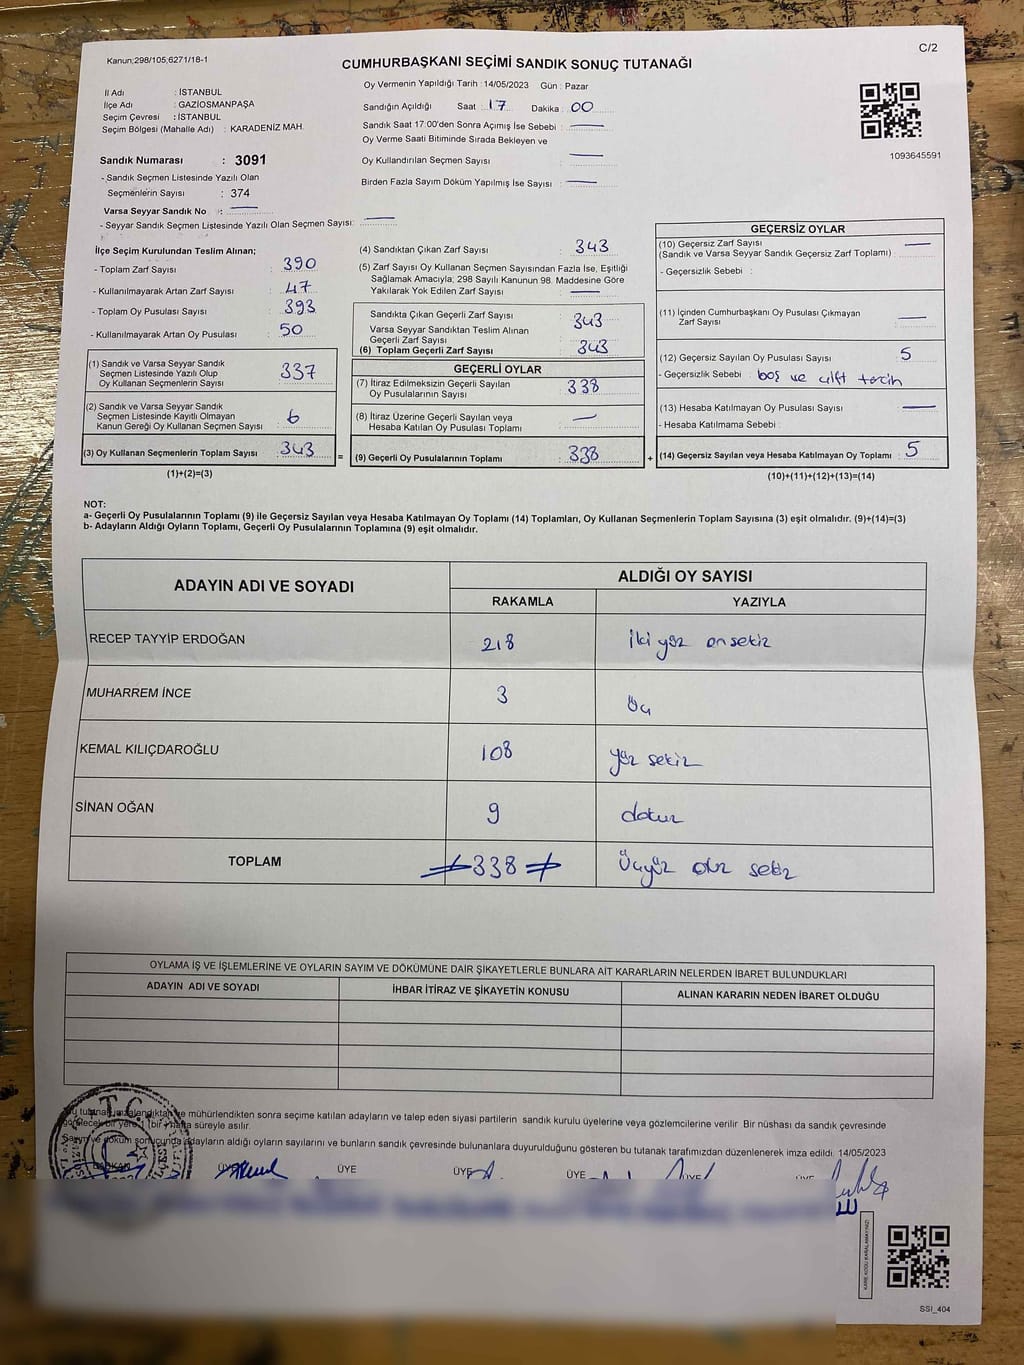 Kanun;298/105;6271/18-1
C/2
CUMHURBAŞKANI SEÇİMİ SANDIK SONUÇ TUTANAĞI
İl Adı : İSTANBUL
İlçe Adı : GAZİOSMANPAŞA
Seçim Çevresi : İSTANBUL
Seçim Bölgesi (Mahalle Adı) : KARADENİZ MAH.
Sandık Numarası : 3091
- Sandık Seçmen Listesinde Yazılı Olan
Seçmenlerin Sayısı : 374
Varsa Seyyar Sandık No :
- Seyyar Sandık Seçmen Listesinde Yazılı Olan Seçmen Sayısı:
Oy Vermenin Yapıldığı Tarih :14/05/2023 Gün : Pazar
Sandığın Açıldığı Saat : 17 Dakika : 00
Sandık Saat 17:00'den Sonra Açımış İse Sebebi :
Oy Verme Saati Bitiminde Sırada Bekleyen ve
Oy Kullandırılan Seçmen Sayısı :
Birden Fazla Sayım Döküm Yapılmış İse Sayısı :
1093645591
İlçe Seçim Kurulundan Teslim Alınan;
- Toplam Zarf Sayısı : 390
- Kullanılmayarak Artan Zarf Sayısı : 47
- Toplam Oy Pusulası Sayısı : 393
- Kullanılmayarak Artan Oy Pusulası : 50
(1) Sandık ve Varsa Seyyar Sandık
Seçmen Listesinde Yazılı Olup
Oy Kullanan Seçmenlerin Sayısı : 337
(2) Sandık ve Varsa Seyyar Sandık
Seçmen Listesinde Kayıtlı Olmayan
Kanun Gereği Oy Kullanan Seçmen Sayısı : 6
(3) Oy Kullanan Seçmenlerin Toplam Sayısı : 343
(1)+(2)=(3)
(4) Sandıktan Çıkan Zarf Sayısı : 343
(5) Zarf Sayısı Oy Kullanan Seçmen Sayısından Fazla İse, Eşitliği
Sağlamak Amacıyla, 298 Sayılı Kanunun 98. Maddesine Göre
Yakılarak Yok Edilen Zarf Sayısı :
Sandıkta Çıkan Geçerli Zarf Sayısı : 343
Varsa Seyyar Sandıktan Teslim Alınan
Geçerli Zarf Sayısı :
(6) Toplam Geçerli Zarf Sayısı : 343
GEÇERLİ OYLAR
(7) İtiraz Edilmeksizin Geçerli Sayılan
Oy Pusulalarının Sayısı : 338
(8) İtiraz Üzerine Geçerli Sayılan veya
Hesaba Katılan Oy Pusulası Toplamı :
= (9) Geçerli Oy Pusulalarının Toplamı : 338
GEÇERSİZ OYLAR
(10) Geçersiz Zarf Sayısı
(Sandık ve Varsa Seyyar Sandık Geçersiz Zarf Toplamı) :
- Geçersizlik Sebebi :
(11) İçinden Cumhurbaşkanı Oy Pusulası Çıkmayan
Zarf Sayısı :
(12) Geçersiz Sayılan Oy Pusulası Sayısı : 5
- Geçersizlik Sebebi : boş ve çift tercih
(13) Hesaba Katılmayan Oy Pusulası Sayısı :
- Hesaba Katılmama Sebebi :
+ (14) Geçersiz Sayılan veya Hesaba Katılmayan Oy Toplamı : 5
(10)+(11)+(12)+(13)=(14)
NOT:
a- Geçerli Oy Pusulalarının Toplamı (9) ile Geçersiz Sayılan veya Hesaba Katılmayan Oy Toplamı (14) Toplamları, Oy Kullanan Seçmenlerin Toplam Sayısına (3) eşit olmalıdır. (9)+(14)=(3)
b- Adayların Aldığı Oyların Toplamı, Geçerli Oy Pusulalarının Toplamına (9) eşit olmalıdır.
ADAYIN ADI VE SOYADI ALDIĞI OY SAYISI
RAKAMLA YAZIYLA
RECEP TAYYİP ERDOĞAN 218 iki yüz onsekiz
MUHARREM İNCE 3 üç
KEMAL KILIÇDAROĞLU 108 yüz sekiz
SİNAN OĞAN 9 dokuz
TOPLAM 338 üçyüz otuz sekiz
OYLAMA İŞ VE İŞLEMLERİNE VE OYLARIN SAYIM VE DÖKÜMÜNE DAİR ŞİKAYETLERLE BUNLARA AİT KARARLARIN NELERDEN İBARET BULUNDUKLARI
ADAYIN ADI VE SOYADI İHBAR İTİRAZ VE ŞİKAYETİN KONUSU ALINAN KARARIN NEDEN İBARET OLDUĞU
T.C.
tutanak imzalandıktan ve mühürlendikten sonra seçime katılan adayların ve talep eden siyasi partilerin sandık kurulu üyelerine veya gözlemcilerine verilir Bir nüshası da sandık çevresinde
görülecek bir yere 1 (bir) hafta süreyle asılır.
Sayım ve döküm sonucunda adayların aldığı oyların sayılarını ve bunların sandık çevresinde bulunanlara duyurulduğunu gösteren bu tutanak tarafımızdan düzenlenerek imza edildi. 14/05/2023
BAŞKAN ÜYE ÜYE ÜYE ÜYE ÜYE ÜYE
SSI_404